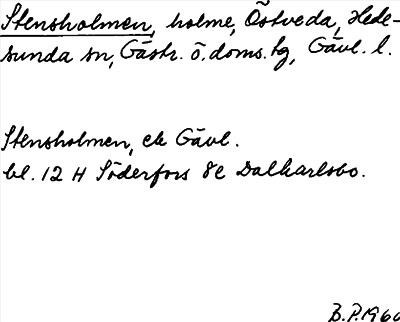 Stensholmen, holme, Östveda, Hede-
sunda sn, Gästr. ö. doms. tg, Gävl. l.
Stensholmen, ek Gävl.
bl. 12 H Söderfors 8c Dalkarlsbo.
B.P. 1960